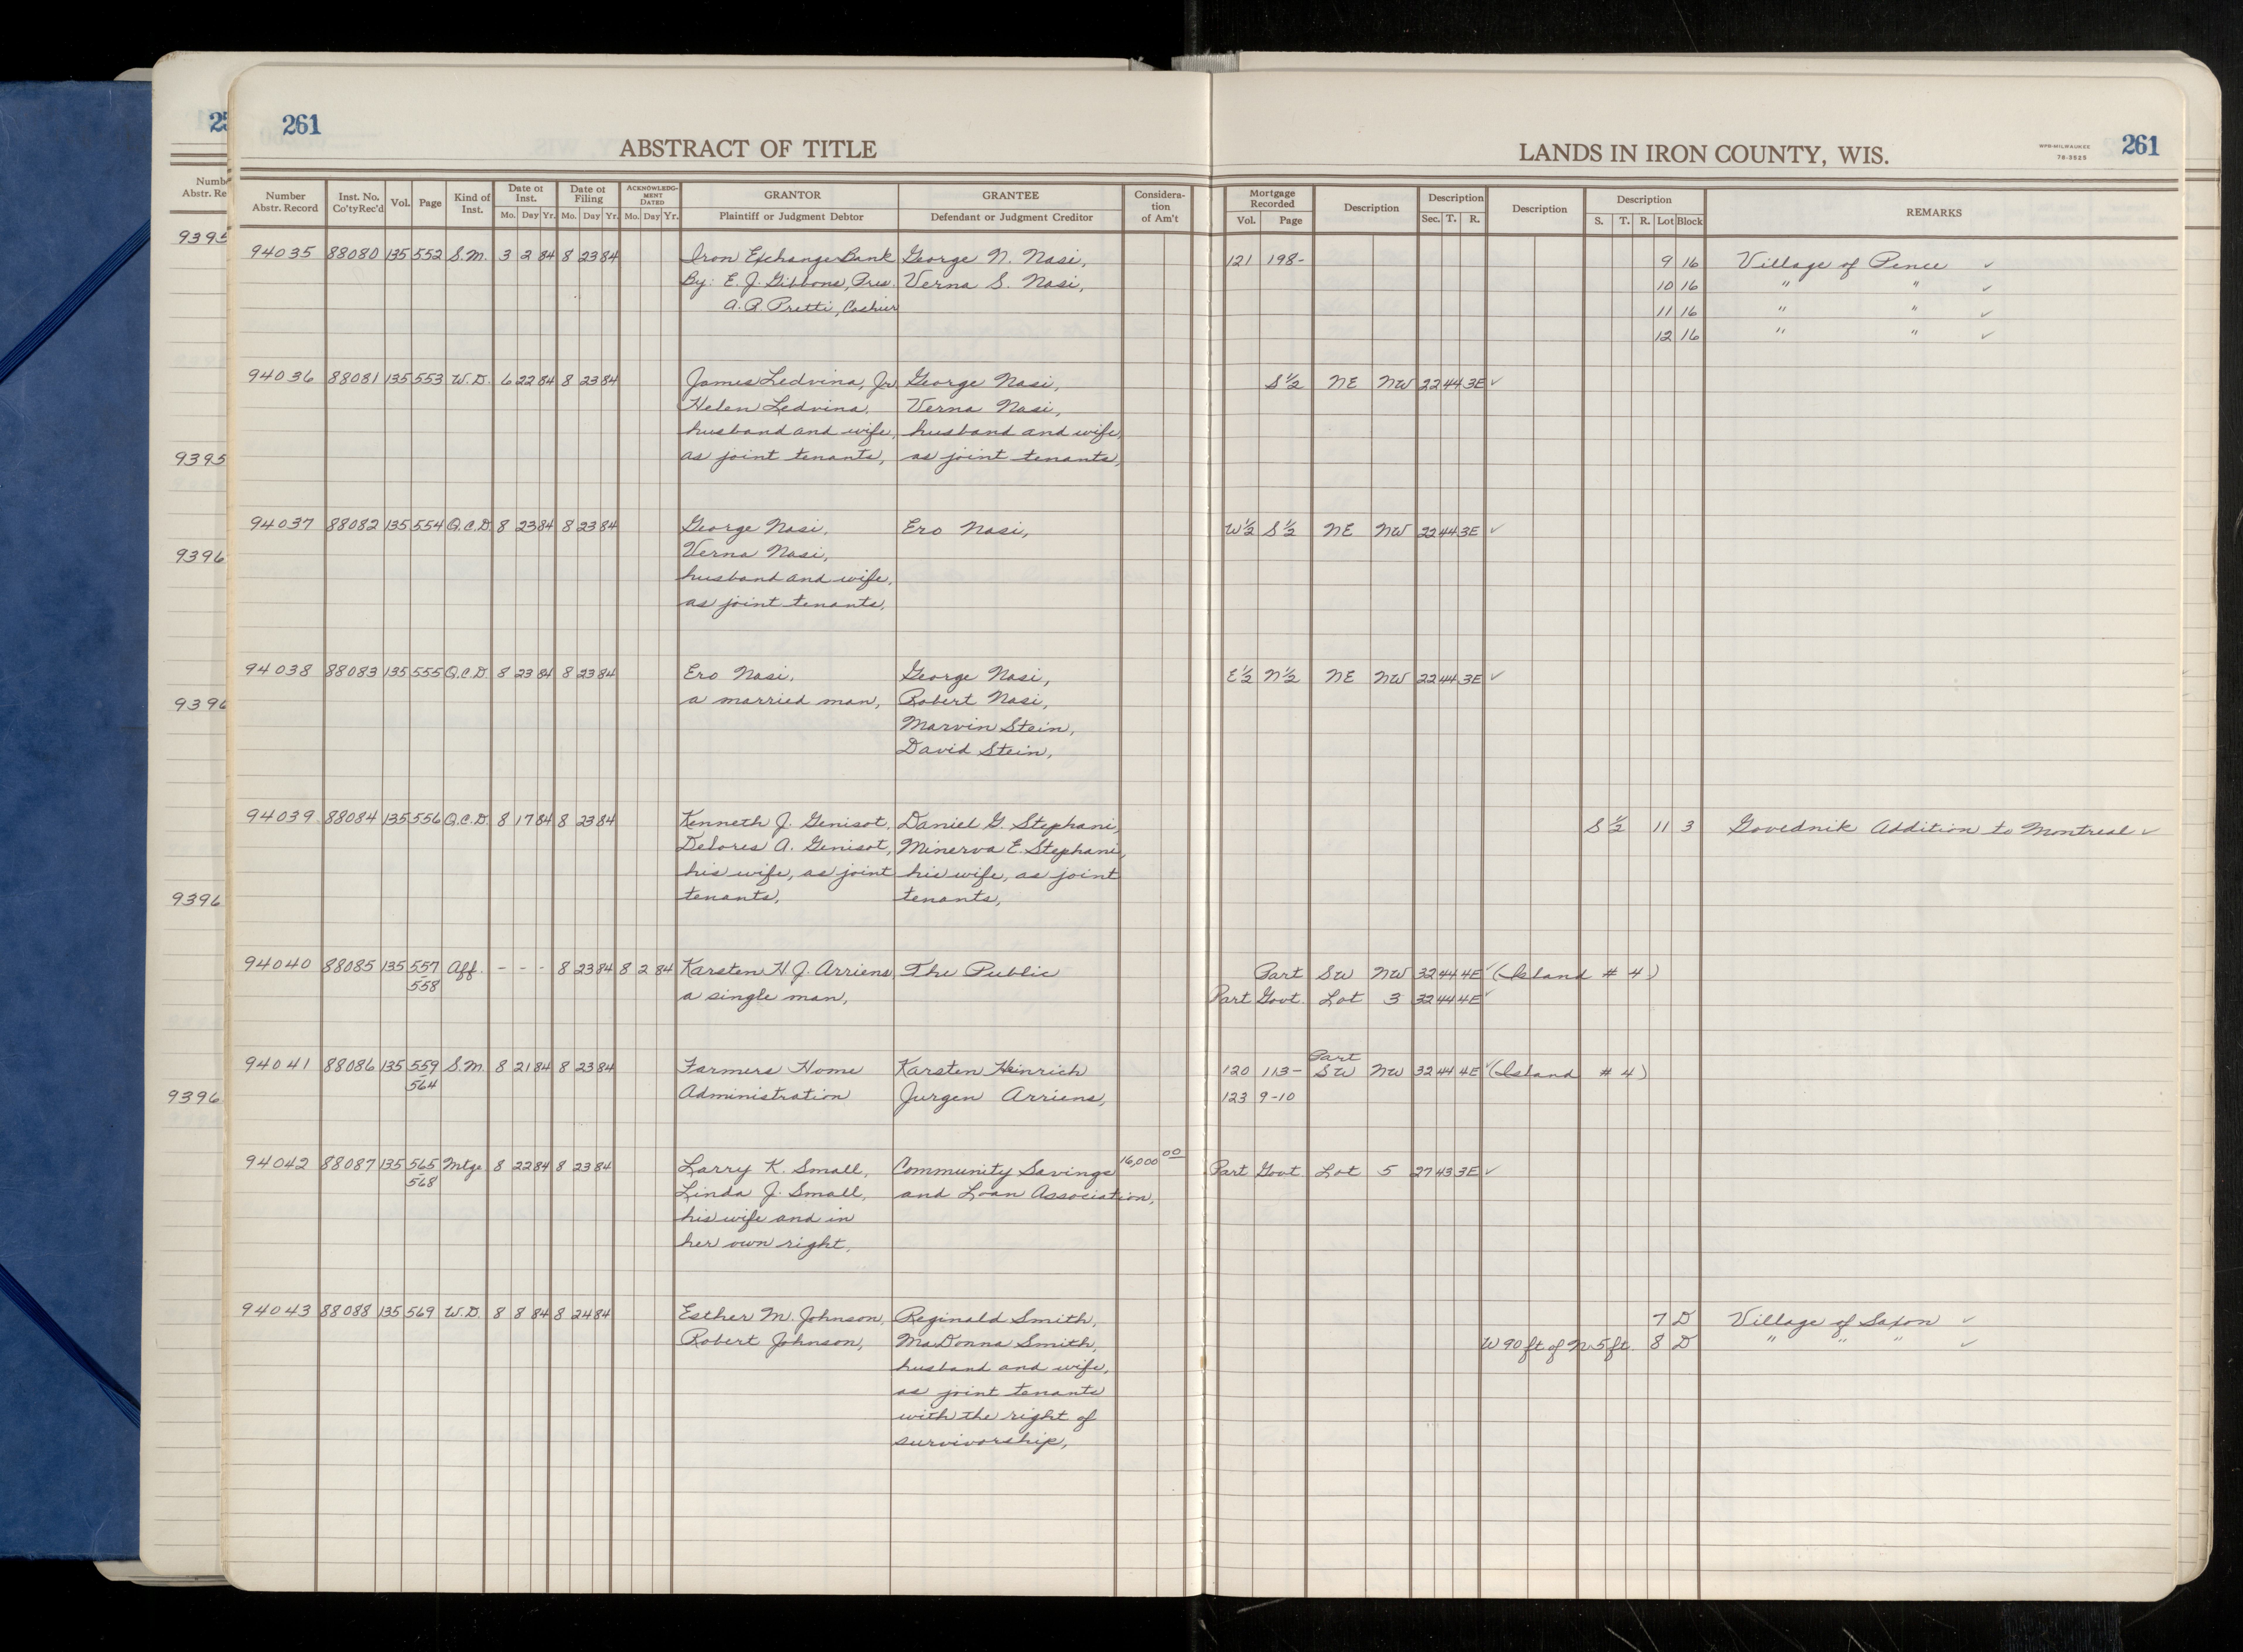 261
ABSTRACT OF TITLE
LANDS IN IRON COUNTY, WIS.
WPB-MILWAUKEE
78-3525
261
Number Abstr. Record | Inst. No. Co'ty Rec'd | Vol. | Page | Kind of Inst. | Date of Inst. Mo. Day Yr. | Date of Filing Mo. Day Yr. | ACKNOWLEDGMENT DATED Mo. Day Yr. | GRANTOR Plaintiff or Judgment Debtor | GRANTEE Defendant or Judgment Creditor | Considera-tion of Am't | Mortgage Recorded Vol. Page | Description | Description Sec. T. R. | Description | Description S. T. R. Lot Block | REMARKS
94035 88080 135 552 S.M. 3 2 84 8 23 84 Iron Exchange Bank George N. Nasi, 121 198- 9 16 Village of Pence ✓
By: E. J. Gibbons, Pres. Verna S. Nasi, 10 16 " " ✓
A.B. Pretti, Cashier 11 16 " " ✓
12 16 " " ✓
94036 88081 135 553 W.D. 6 22 84 8 23 84 James Ledvina, Jr. George Nasi, S½ NE NW 22 44 3E ✓
Helen Ledvina, Verna Nasi,
husband and wife, husband and wife,
as joint tenants, as joint tenants,
94037 88082 135 554 Q.C.D. 8 23 84 8 23 84 George Nasi, Ero Nasi, W½ S½ NE NW 22 44 3E ✓
Verna Nasi,
husband and wife,
as joint tenants,
94038 88083 135 555 Q.C.D. 8 23 84 8 23 84 Ero Nasi, George Nasi, E½ N½ NE NW 22 44 3E ✓
a married man, Robert Nasi,
Marvin Stein,
David Stein,
94039 88084 135 556 Q.C.D. 8 17 84 8 23 84 Kenneth J. Genisot, Daniel G. Stephani, S ½ 11 3 Govednik Addition to Montreal ✓
Delores A. Genisot, Minerva E. Stephani,
his wife, as joint his wife, as joint
tenants, tenants,
94040 88085 135 557-558 Aff. - - - 8 23 84 8 2 84 Karsten H.J. Arriens The Public Part SW NW 32 44 4E ✓ (Island # 4)
a single man, Part Govt. Lot 3 32 44 4E ✓
94041 88086 135 559-564 S.M. 8 21 84 8 23 84 Farmers Home Karsten Heinrich 120 113- Part SW NW 32 44 4E ✓ (Island # 4)
Administration Jurgen Arriens, 123 9-10
94042 88087 135 565-568 Mtge. 8 22 84 8 23 84 Larry K. Small, Community Savings 16,000 00 Part Govt Lot 5 27 43 3E ✓
Linda J. Small, and Loan Association,
his wife and in
her own right,
94043 88088 135 569 W.D. 8 8 84 8 24 84 Esther M. Johnson, Reginald Smith, 7 D Village of Saxon ✓
Robert Johnson, MaDonna Smith, W 90 ft of N. 5 ft. 8 D " " " ✓
husband and wife,
as joint tenants
with the right of
survivorship,